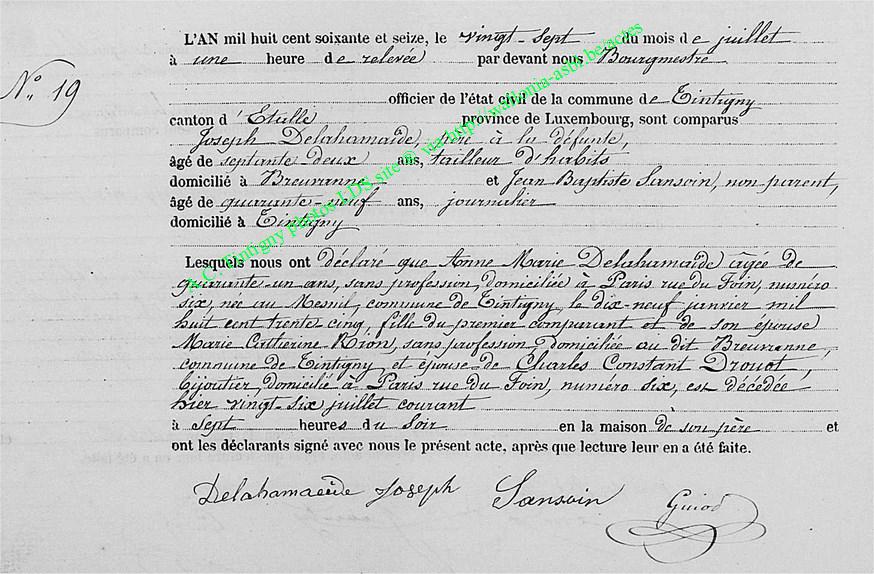 L'AN mil huit cent soixante et seize, le vingt-sept du mois de juillet
à une heure de relevée par devant nous Bourgmestre
N° 19
officier de l'état civil de la commune de Tintigny
canton d'Etalle province de Luxembourg, sont comparus
Joseph Delahamaide, père à la défunte,
âgé de septante deux ans, tailleur d'habits
domicilié à Breuvanne et Jean Baptiste Sansoin, non parent,
âgé de quarante-neuf ans, journalier
domicilié à Tintigny
Lesquels nous ont déclaré que Anne Marie Delahamaide âgée de
quarante-un ans, sans profession, domiciliée à Paris rue du Foin, numéro
six, née au Mesnil, commune de Tintigny, le dix-neuf janvier mil
huit cent trente cinq, fille du premier comparant et de son épouse
Marie Catherine Dion, sans profession, domiciliée au dit Breuvanne,
commune de Tintigny, et épouse de Charles Constant Drouot,
bijoutier, domicilié à Paris rue du Foin, numéro six, est décédée
hier vingt-six juillet courant
à sept heures du soir en la maison de son père et
ont les déclarants signé avec nous le présent acte, après que lecture leur en a été faite.
Delahamaeide Joseph Sansoin Guiod
A.C. Tintigny photos LDS site © via http://wallonia-asbl.be/actes